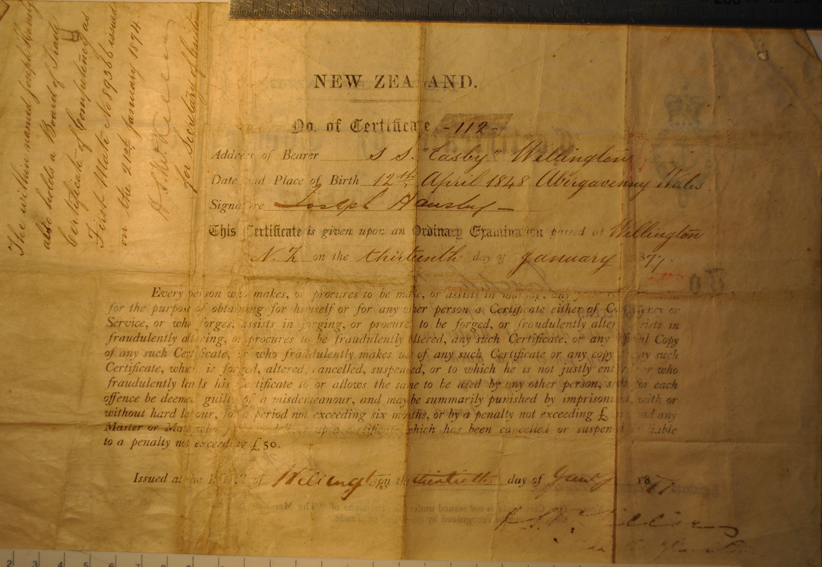 NEW ZEALAND.
No. of Certificate -112-
Address of Bearer S S. "Easby" Wellington
Date and Place of Birth 12th April 1848 Abergavenny Wales
Signature Joseph Hamsby
This Certificate is given upon an Ordinary Examination passed at Wellington
N. Z on the thirteenth day of January 1877
Every person who makes, or procures to be made, or assists in making, any
for the purpose of obtaining for himself or for any other person a Certificate either of Competency or
Service, or who forges, assists in forging, or procures to be forged, or fraudulently alters, assists in
fraudulently altering, or procures to be fraudulently altered, any such Certificate, or any Official Copy
of any such Certificate, or who fraudulently makes use of any such Certificate or any copy of any such
Certificate, which is forged, altered, cancelled, suspended, or to which he is not justly entitled, or who
fraudulently lends his Certificate to or allows the same to be used by any other person, shall for each
offence be deemed guilty of a misdemeanour, and may be summarily punished by imprisonment, with or
without hard labour, for a period not exceeding six months, or by a penalty not exceeding £ and any
Master or Mate who a Certificate which has been cancelled or suspended is liable
to a penalty not exceeding £50.
Issued at the of Wellington on the thirtieth day of Jany 1877
The within named Joseph
also holds a Board of Trade
Certificate of Competency as
First Mate No 89388 issued
on the 21st January 1874
for Secretary of Customs
2 3 4 5 6 7 8 9